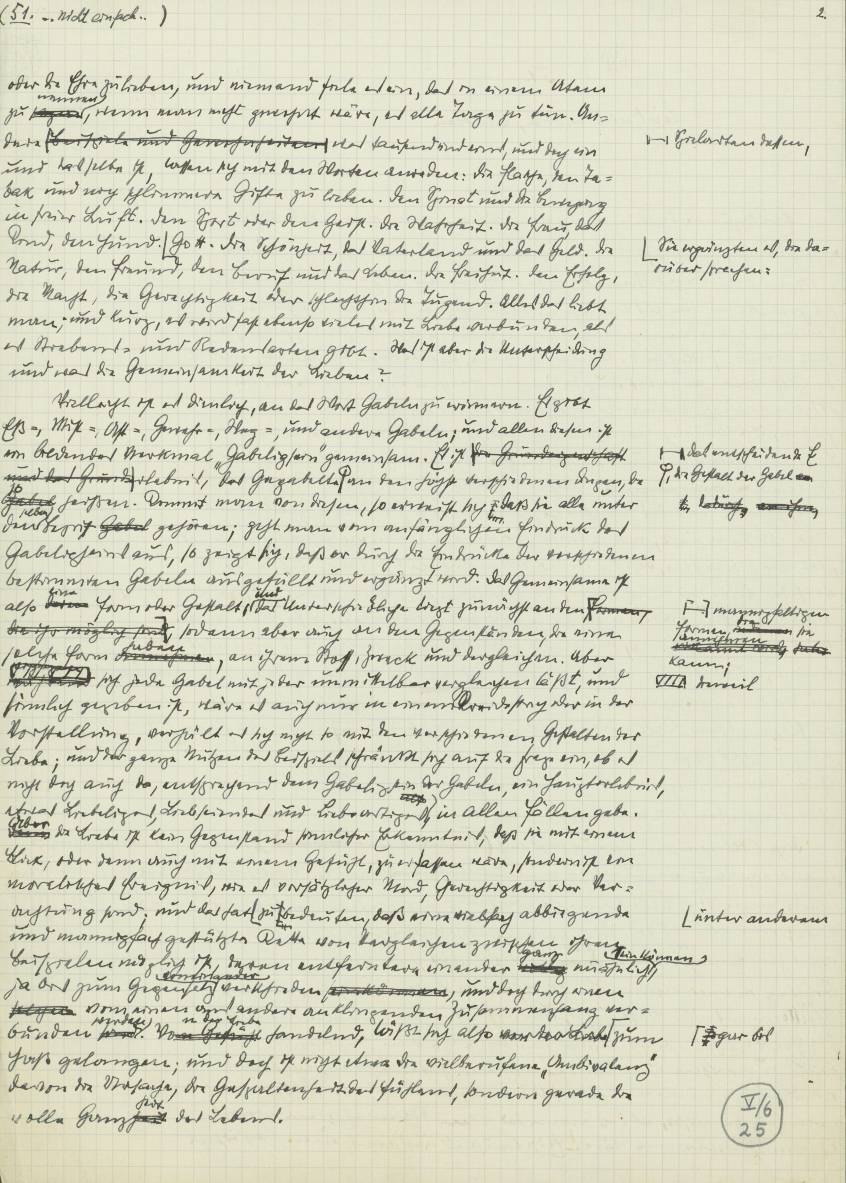 (51. .. nicht einfach .. )
2.
oder die Ehre zu lieben, und niemand fiele es ein, das in einem Atem
zu sagen nennen, wenn man nicht gewohnt wäre, es alle Tage zu tun. An=
dere Beispiele und Gewohnheiten, was tausend und eins, und doch ein
Spielarten dessen,
und dasselbe ist, lassen sich mit den Worten anreden: die Flasche, den Ta=
bak und noch schlimmere Gifte zu lieben. Den Spinat und die Bewegung
in freier Luft. Den Sport oder den Geist. Die Wahrheit. Die Frau, das
Kind, den Hund. Gott. Die Schönheit, das Vaterland und das Geld. Die
Sie ergänzten es, die da=
rüber sprachen:
Natur, den Freund, den Beruf und das Leben. Die Freiheit. Den Erfolg,
die Macht, die Gerechtigkeit oder schlechthin die Tugend. Alles das liebt
man; und kurz, es wird fast ebenso vieles mit Liebe verbunden, als
es Strebens= und Redensarten gibt. Was ist aber die Unterscheidung
und was die Gemeinsamkeit der Lieben?
Vielleicht ist es dienlich, an das Wort Gabeln zu erinnern. Es gibt
Eß=, Mist=, Ast=, Gewehr=, Weg=, und andere Gabeln; und allen diesen ist
ein bildendes Merkmal „Gabeligsein" gemeinsam. Es ist die Grundeigenschaft
das entscheidende E
und das Grunderlebnis, das Gegabelte, an den höchst verschiedenen Dingen, die
, die Gestalt der Gabel
Gabel heißen. Kommt man von diesen, so erweist sich, daß sie alle unter
den selben Begriff gehören; geht man vom anfänglichen Eindruck des
Gabeligseins aus, so zeigt sich, daß er durch die Eindrücke der verschiedenen
bestimmten Gabeln ausgefüllt und ergänzt wird. Das Gemeinsame ist
also eine Form oder Gestalt, und das Unterschiedliche liegt zunächst an den Formen,
mannigfaltigen
die ihr möglich sind, sodann aber auch an den Gegenständen, die eine
Formen, die sie
annehmen
solche Form haben, an ihrem Stoff, Zweck und dergleichen. Aber
kann;
sich jede Gabel mit jeder unmittelbar vergleichen läßt, und
derweil
sinnlich gegeben ist, wäre es auch nur in einem Kreidestrich oder in der
Vorstellung, verhält es sich nicht so mit den verschiedenen Gestalten der
Liebe; und der ganze Nutzen des Beispiels schränkt sich auf die Frage ein, ob es
nicht doch auch da, entsprechend dem Gabeligsein der Gabeln, ein Haupterlebnis,
etwas Liebeliges, Liebseiendes und Liebeartiges, in allen Fällen gebe.
Aber die Liebe ist kein Gegenstand sinnlicher Erkenntnis, daß sie mit einem
Blick, oder denn auch mit einem Gefühl, zu erfassen wäre, sondern ist ein
moralisches Ereignis, wie es vorsätzlicher Mord, Gerechtigkeit oder Ver=
achtung sind; und das hat zu bedeuten, daß eine vielfach abbiegende
unter anderem
und mannigfach gestützte Kette von Vergleichen zwischen ihren
Beispielen möglich ist, deren entferntere einander ganz unähnlich sein können,
ja bis zum Gegensatz voneinander verschieden, und doch durch einen
vom einen ans andere anklingenden Zusammenhang ver=
bunden werden. Von der Liebe handelnd, läßt sich also zum
sogar bis
Haß gelangen; und doch ist nicht etwa die vielberufene „Ambivalenz"
davon die Ursache, die Gespaltenheit des Fühlens, sondern gerade die
volle Ganzheit des Lebens.
V/6
25